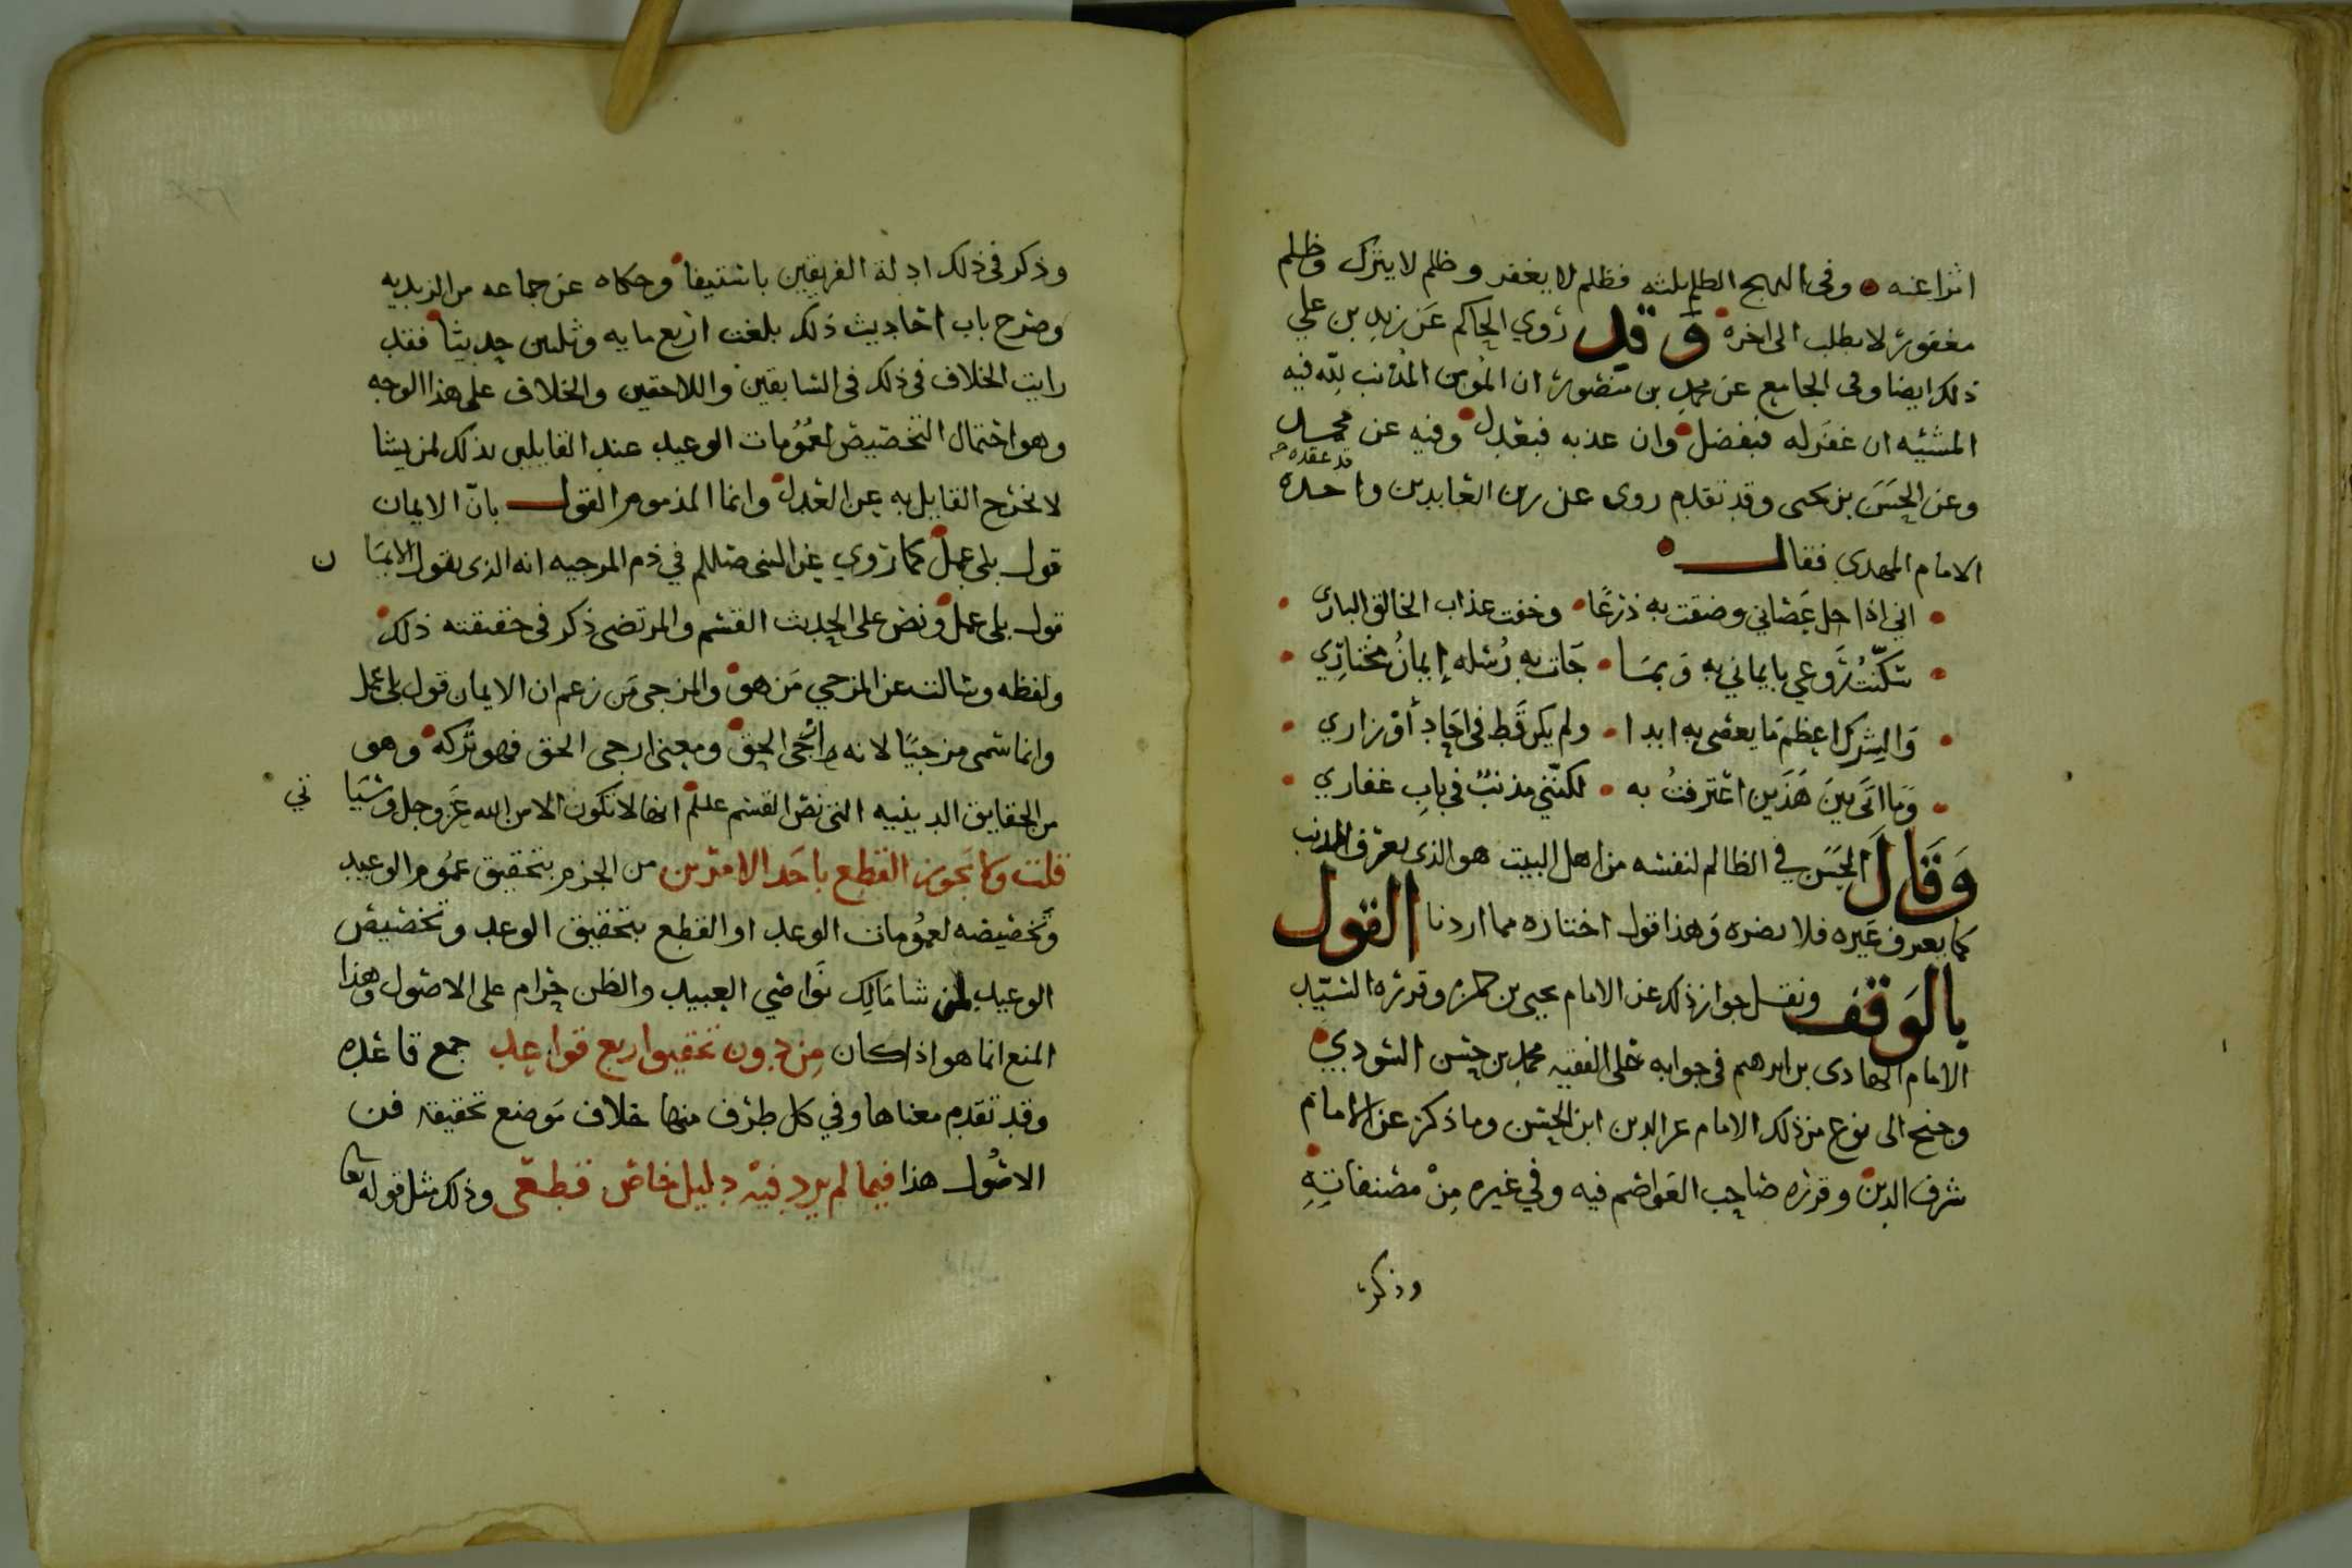 اثرا عنه وفي النهج الظلم ثلثه فظلم لا يغفر وظلم لا يترك وظلم
مغفور لا يطلب الى اخره وَقد روي الحاكم عَن زيدِ بن علي
ذلك ايضا وفي الجامع عن محمدِ بن منصور ان المُومن المُذنب لله فيه
المشيّه ان غفر له فبفضل وان عذبه فبعدل وفيه عن محمد
قد عقده
وعن الحسَن بن يحيى وقد تقدم روى عن زين العابدين واحده
الامام المهدي فقال
اني اذا جل عِصْياني وضقت به ذرعًا وخفت عذاب الخالق الباري
سَكّنتُ رَوعي بايماني به وَبمَا جَات به رُسْله إيمانُ مختارِي
وَالشِرك اعظم مَا يعصى به ابدا ولم يكن قَط في احَادِ أوْزاري
وَمَا اتَى بَينَ هَذَين اعْترفتُ به لكنّني مذنبٌ في بابِ غفاري
وَقَالَ الحسَن في الظالم لنفسه من اهل البيت هو الذي يعرف الذنب
كما يعرف غَيره فلا يضره وَهذا قول اختاره مما اردنا القول
بالوَقف ونقل جواز ذلك عن الامام يحيى بن حمزه وقرره السّيّد
الامام الهادى بن ابرهيم في جوابه على الفقيه محمد بن حسن السودي
وجنح الى نوع من ذلك الامام عز الدين ابن الحسن وما ذكر عن الامام
شرف الدين وقرره صَاحب العَواصم فيه وفي غيره مِنْ مصنفاتِهِ
وذكر
وذكر في ذلك ادلة الفريقين باستيفا وحكاه عن جماعه من الزيديه
وصَرح باب احاديث ذلك بلغت اربع مايه وثلثين حديثا فقد
رايت الخلاف في ذلك في السَّابقين واللاحقين والخلاف على هذا الوجه
وهو احتمال التخصيص لعُمُومات الوعيد عند القايلين بذلك لمن يشا
لا يخرج القايل به عن العَدل وانما المذموم القول بانّ الايمان
قول بلى عمل كما رُوي عن النبي صللم في ذم المرجيه انه الذي يقول الايمَا ن
قول بلى عمل ونص على الحديث القسم والمرتضى ذكر في حقيقته ذلك
ولفظه وسَالت عن المرجي مَن هو والمرجى مَن زعم ان الايمان قول بلى عمل
وانما سُمى مرجيًا لانه ارجى الحق ومعنى ارجى الحق فهو تركه وهو
من الحقايق الدينيه التي نصّ القسم علىلم انها لا تكون الا من الله عَز وجل ورسَيا تي
قلت وكما يَجوز القطع باحَد الامرين من الجزم بتحقيق عمُوم الوعيد
وتخصيصه لعمُومات الوعد او القطع بتحقيق الوعد وتخصيص
الوعيد لمن شا مَالِك نَوَاصي العبيد والظن حرام على الاصُول وهذا
المنع انما هو اذا كان مِن دون تحقيق اربع قواعد جمع قاعده
وقد تقدم معناها وفي كل طرف منها خلاف مَوضع تحقيقه فن
الاصُول هذا فيما لم يرد فيه دليل خاص قطعي وذلك مثل قوله تعا